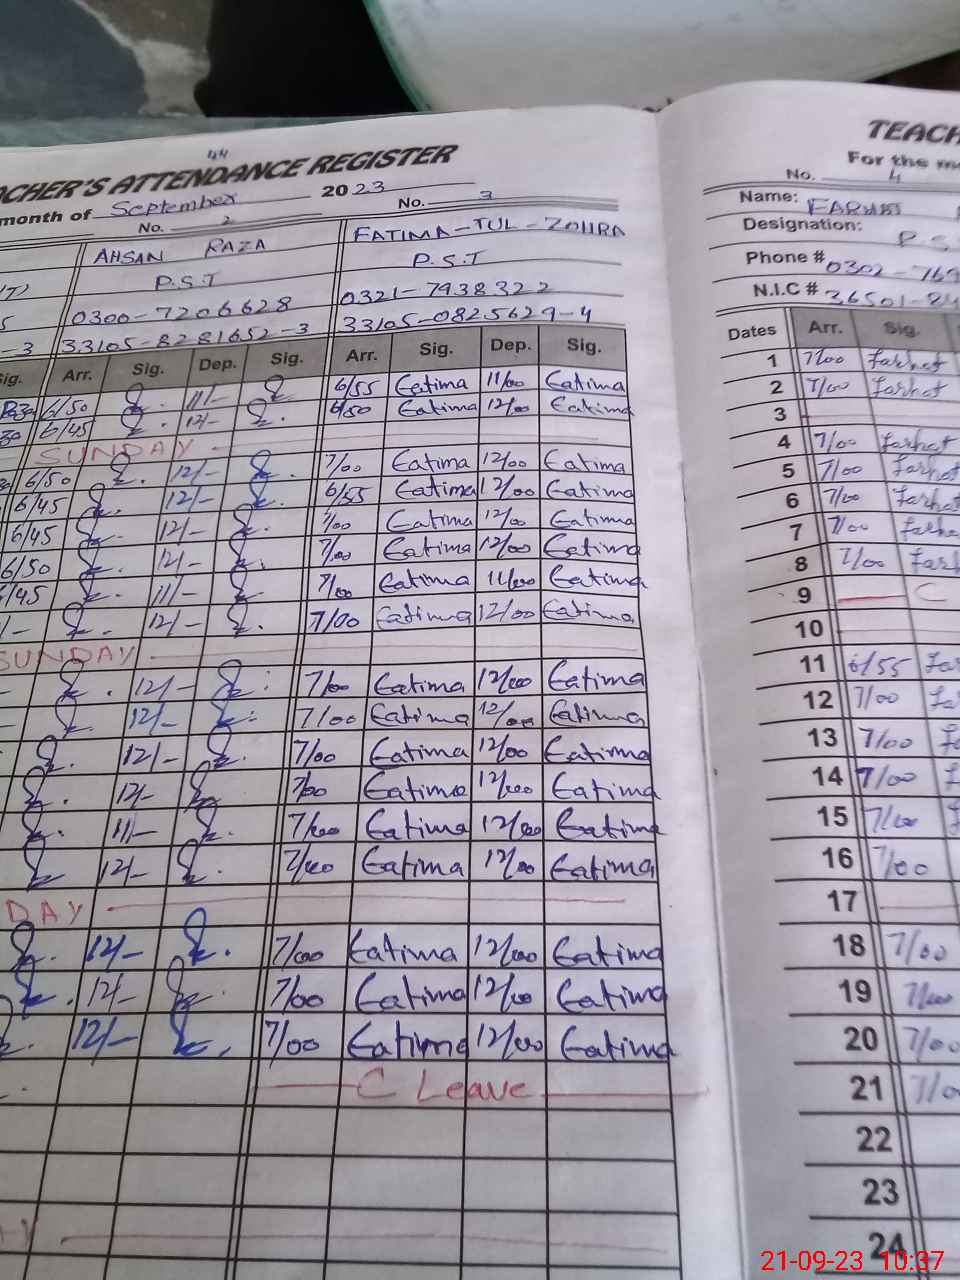 44
TEACH
CHER'S ATTENDANCE REGISTER
For the m
month of September 2023
No. 2 No. 3
No. 4
AHSAN RAZA FATIMA-TUL-ZOHRA
Name: FARHAT
P.S.T P.S.T
Designation: P.S
0300-7206628 0321-7938322
Phone # 0302-769
-3 33105-8281652-3 33105-0825629-4
N.I.C # 36501-84
Sig. Arr. Sig. Dep. Sig. Arr. Sig. Dep. Sig.
Dates Arr. Sig.
6/50 11/- 6/55 Fatima 11/00 Fatima
6/45 12/- 6/50 Fatima 12/00 Fatima
SUNDAY
6/50 12/- 7/00 Fatima 12/00 Fatima
6/45 12/- 6/55 Fatima 12/00 Fatima
6/45 12/- 7/00 Fatima 12/00 Fatima
6/50 12/- 7/00 Fatima 12/00 Fatima
6/45 11/- 7/00 Fatima 11/00 Fatima
/- 12/- 7/00 Fatima 12/00 Fatima
SUNDAY
- 12/- 7/00 Fatima 12/00 Fatima
- 12/- 7/00 Fatima 12/00 Fatima
12/- 7/00 Fatima 12/00 Fatima
12/- 7/00 Fatima 12/00 Fatima
11/- 7/00 Fatima 12/00 Fatima
12/- 7/00 Fatima 12/00 Fatima
DAY
12/- 7/00 Fatima 12/00 Fatima
12/- 7/00 Fatima 12/00 Fatima
12/- 7/00 Fatima 12/00 Fatima
C Leave
1 7/00 Farhat
2 7/00 Farhat
3
4 7/00 Farhat
5 7/00 Farhat
6 7/00 Farhat
7 7/00 Farha
8 7/00 Farh
9 C
10
11 6/55 Far
12 7/00 Fa
13 7/00 Fa
14 7/00
15 7/00
16 7/00
17
18 7/00
19 7/00
20 7/00
21 7/0
22
23
24
21-09-23 10:37